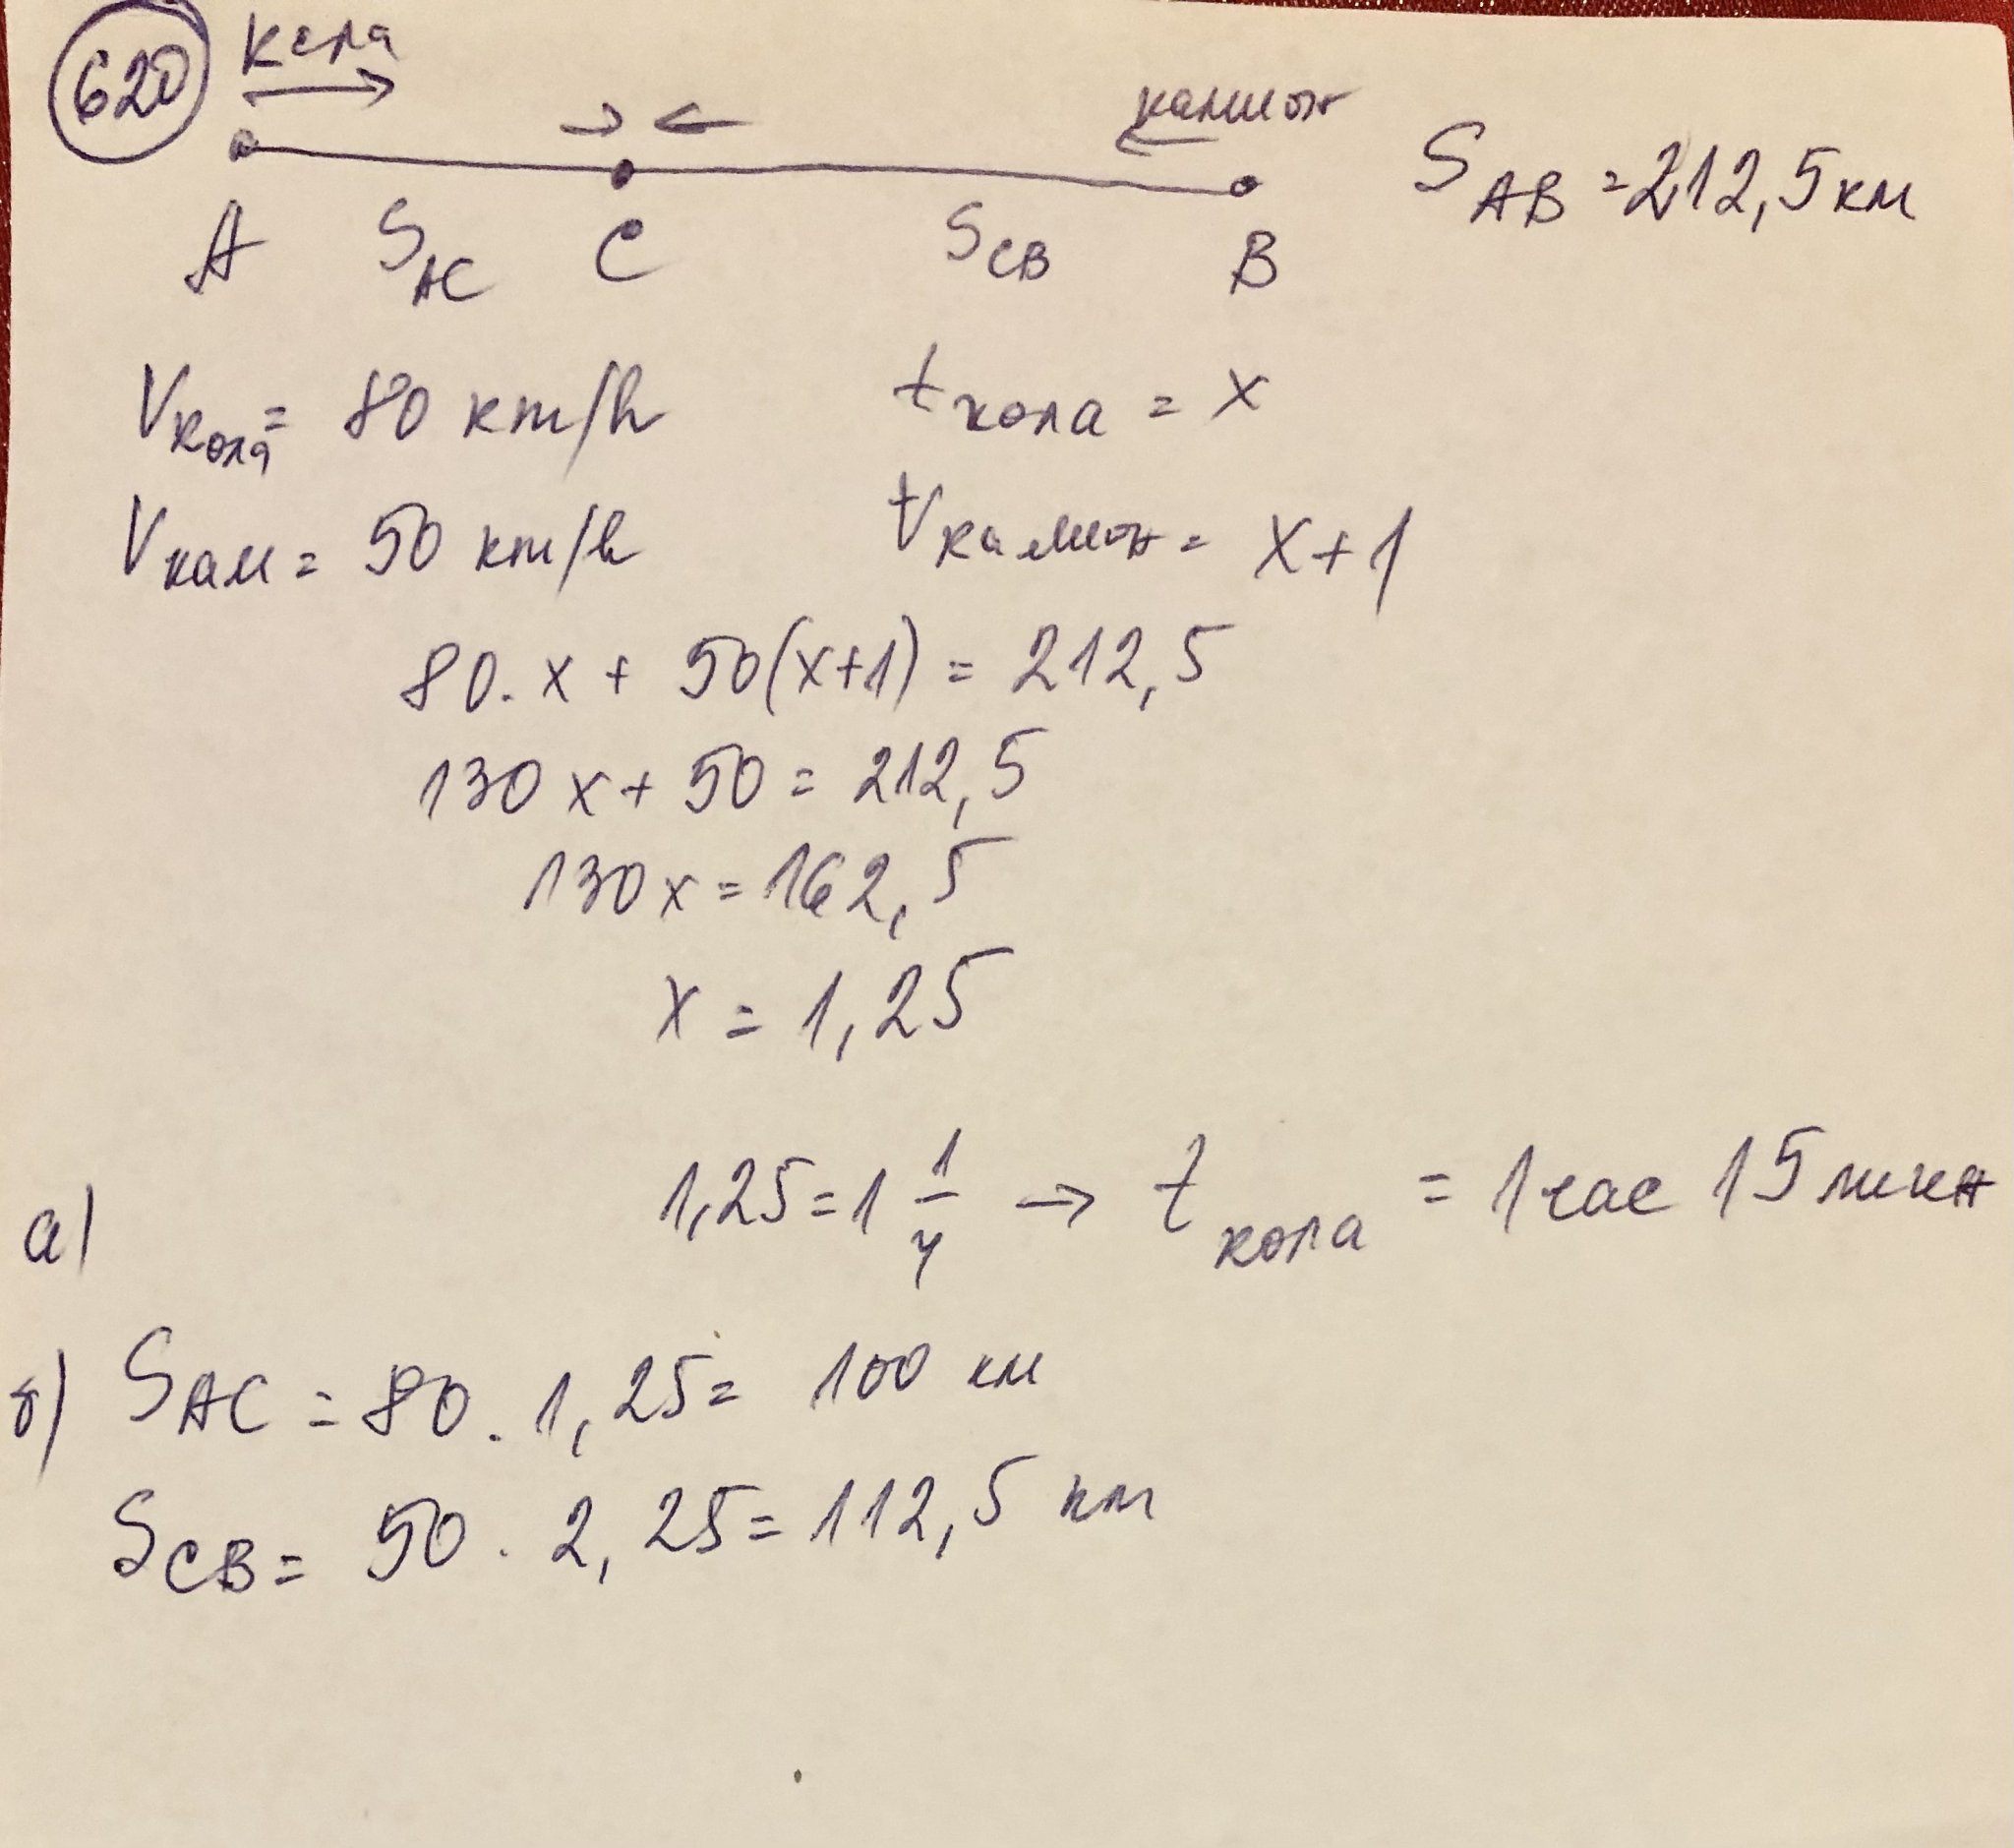 620 кола
камион
S_AB = 212,5 км
A S_AC C S_CB B
V_кола = 80 km/h t_кола = x
V_кам = 50 km/h t_камион = x+1
80 . x + 50(x+1) = 212,5
130x + 50 = 212,5
130x = 162,5
x = 1,25
а) 1,25 = 1 1/4 → t_кола = 1 час 15 мин
б) S_AC = 80 . 1,25 = 100 км
S_CB = 50 . 2,25 = 112,5 км